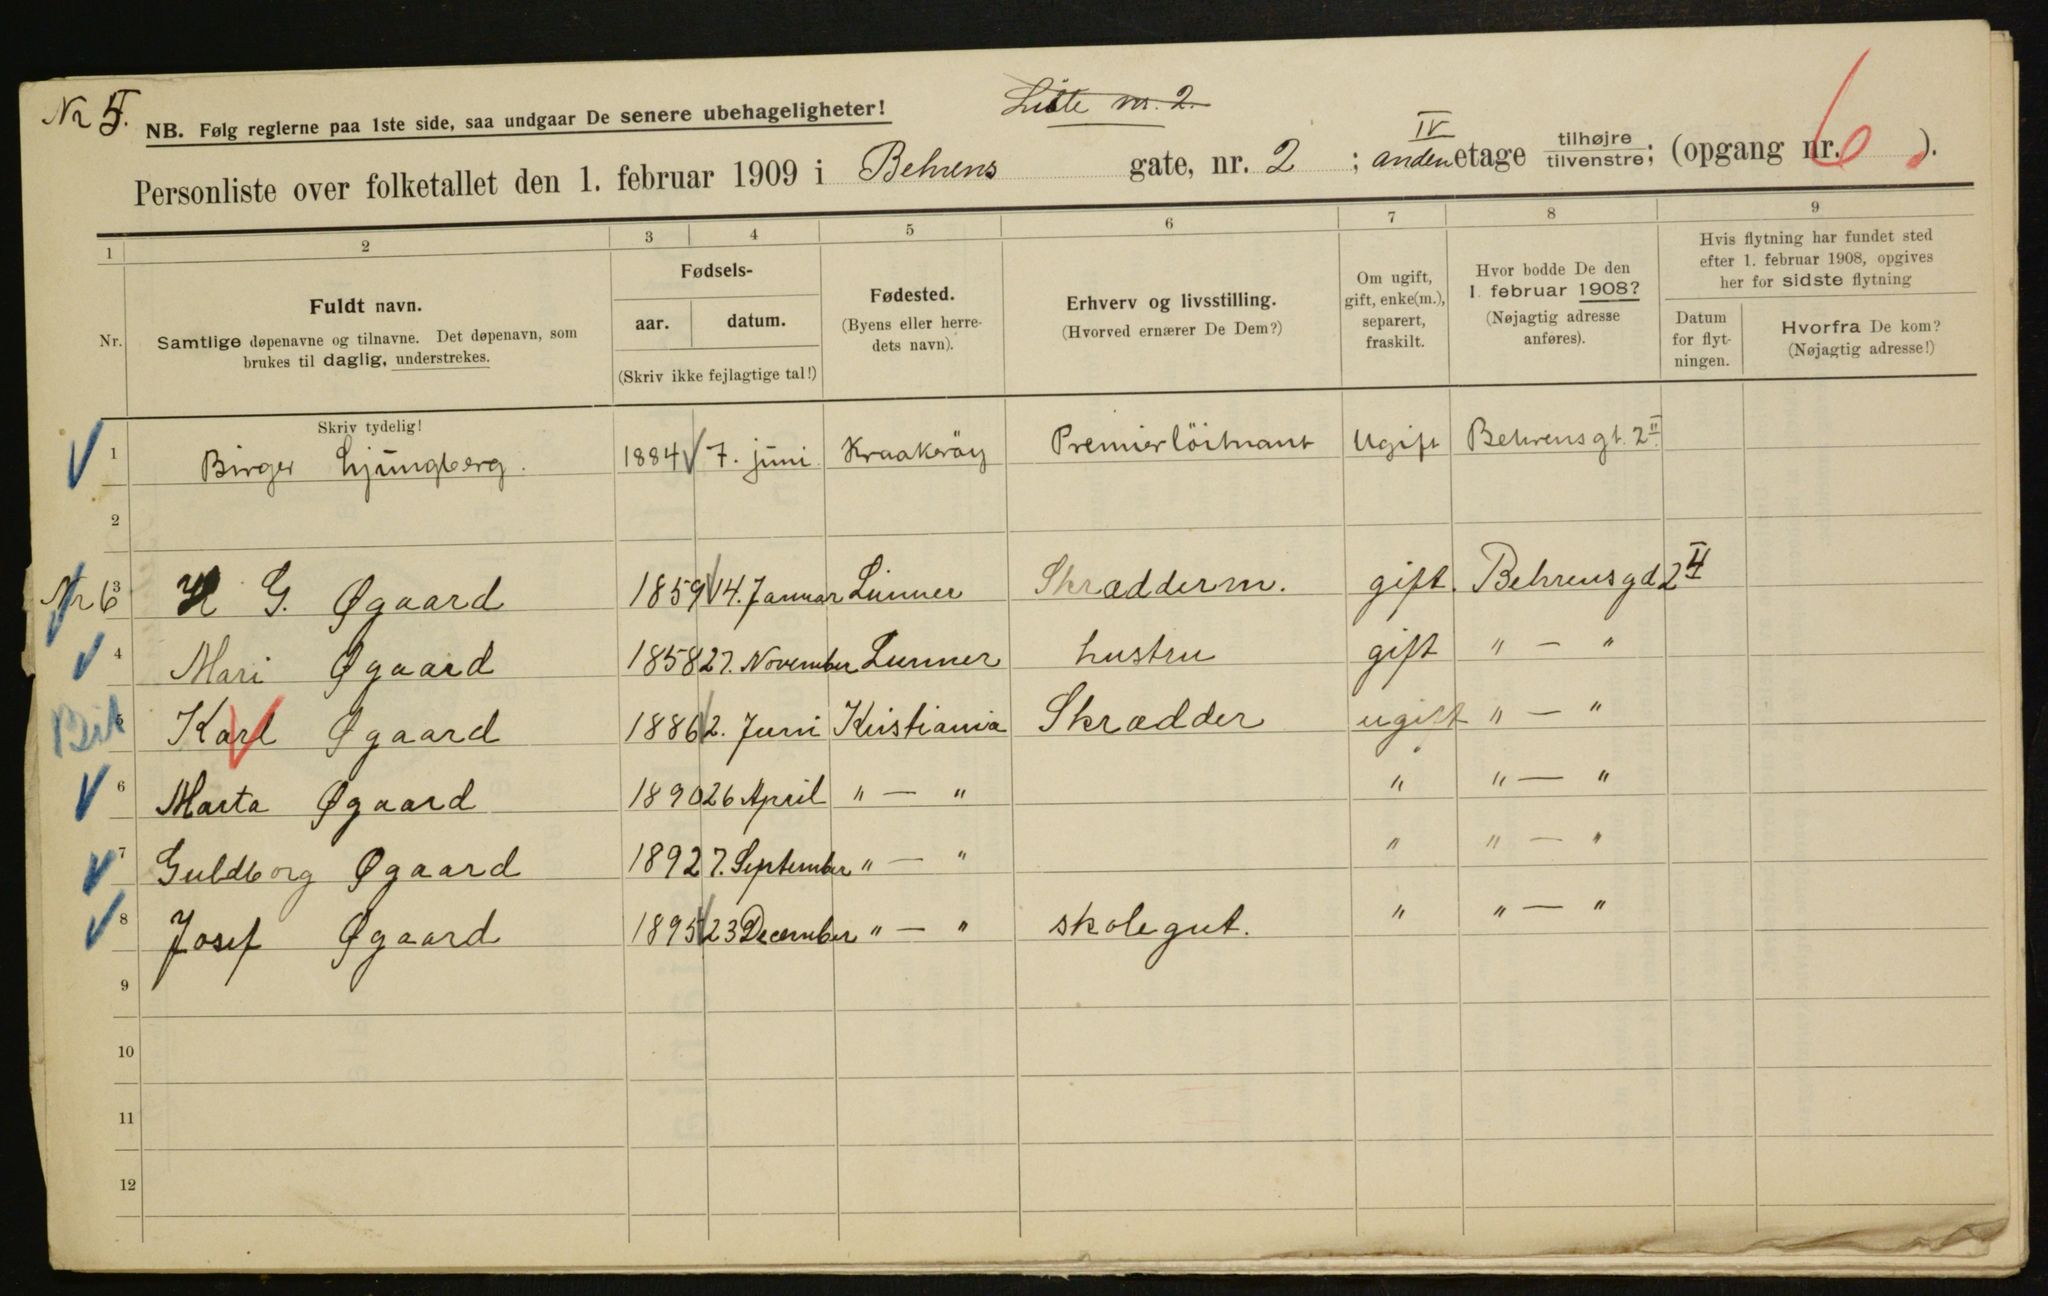 Nr 5.
NB. Følg reglerne paa 1ste side, saa undgaar De senere ubehageligheter!
Liste nr. 2.
Personliste over folketallet den 1. februar 1909 i Behrens gate, nr. 2 ; anden IV etage tilhøjre tilvenstre; (opgang nr. 6 ).
1 2 3 4 5 6 7 8 9
Nr.
Fuldt navn.
Samtlige døpenavne og tilnavne. Det døpenavn, som
brukes til daglig, understrekes.
Fødsels-
aar. datum.
(Skriv ikke fejlagtige tal!)
Fødested.
(Byens eller herre-
dets navn).
Erhverv og livsstilling.
(Hvorved ernærer De Dem?)
Om ugift,
gift, enke(m.),
separert,
fraskilt.
Hvor bodde De den
1. februar 1908?
(Nøjagtig adresse
anføres).
Hvis flytning har fundet sted
efter 1. februar 1908, opgives
her for sidste flytning
Datum
for flyt-
ningen.
Hvorfra De kom?
(Nøjagtig adresse!)
Skriv tydelig!
1 Birger Ljungberg. 1884 7. juni Kraakeröy Premierlöitnant Ugift Behrensgt. 2 II
2
Nr 6 3 H G. Øgaard 1859 14. Januar Lunner Skrædderm. gift. Behrensgd 2 4
4 Mari Øgaard 1858 27. November Lunner hustru gift " — "
5 Karl Øgaard 1886 2. Juni Kristiania Skrædder ugift " — "
6 Marta Øgaard 1890 26 April " — " " " — "
7 Guldborg Øgaard 1892 7. September " — " " " — "
8 Josef Øgaard 1895 23 December " — " skolegut. " " — "
9
10
11
12